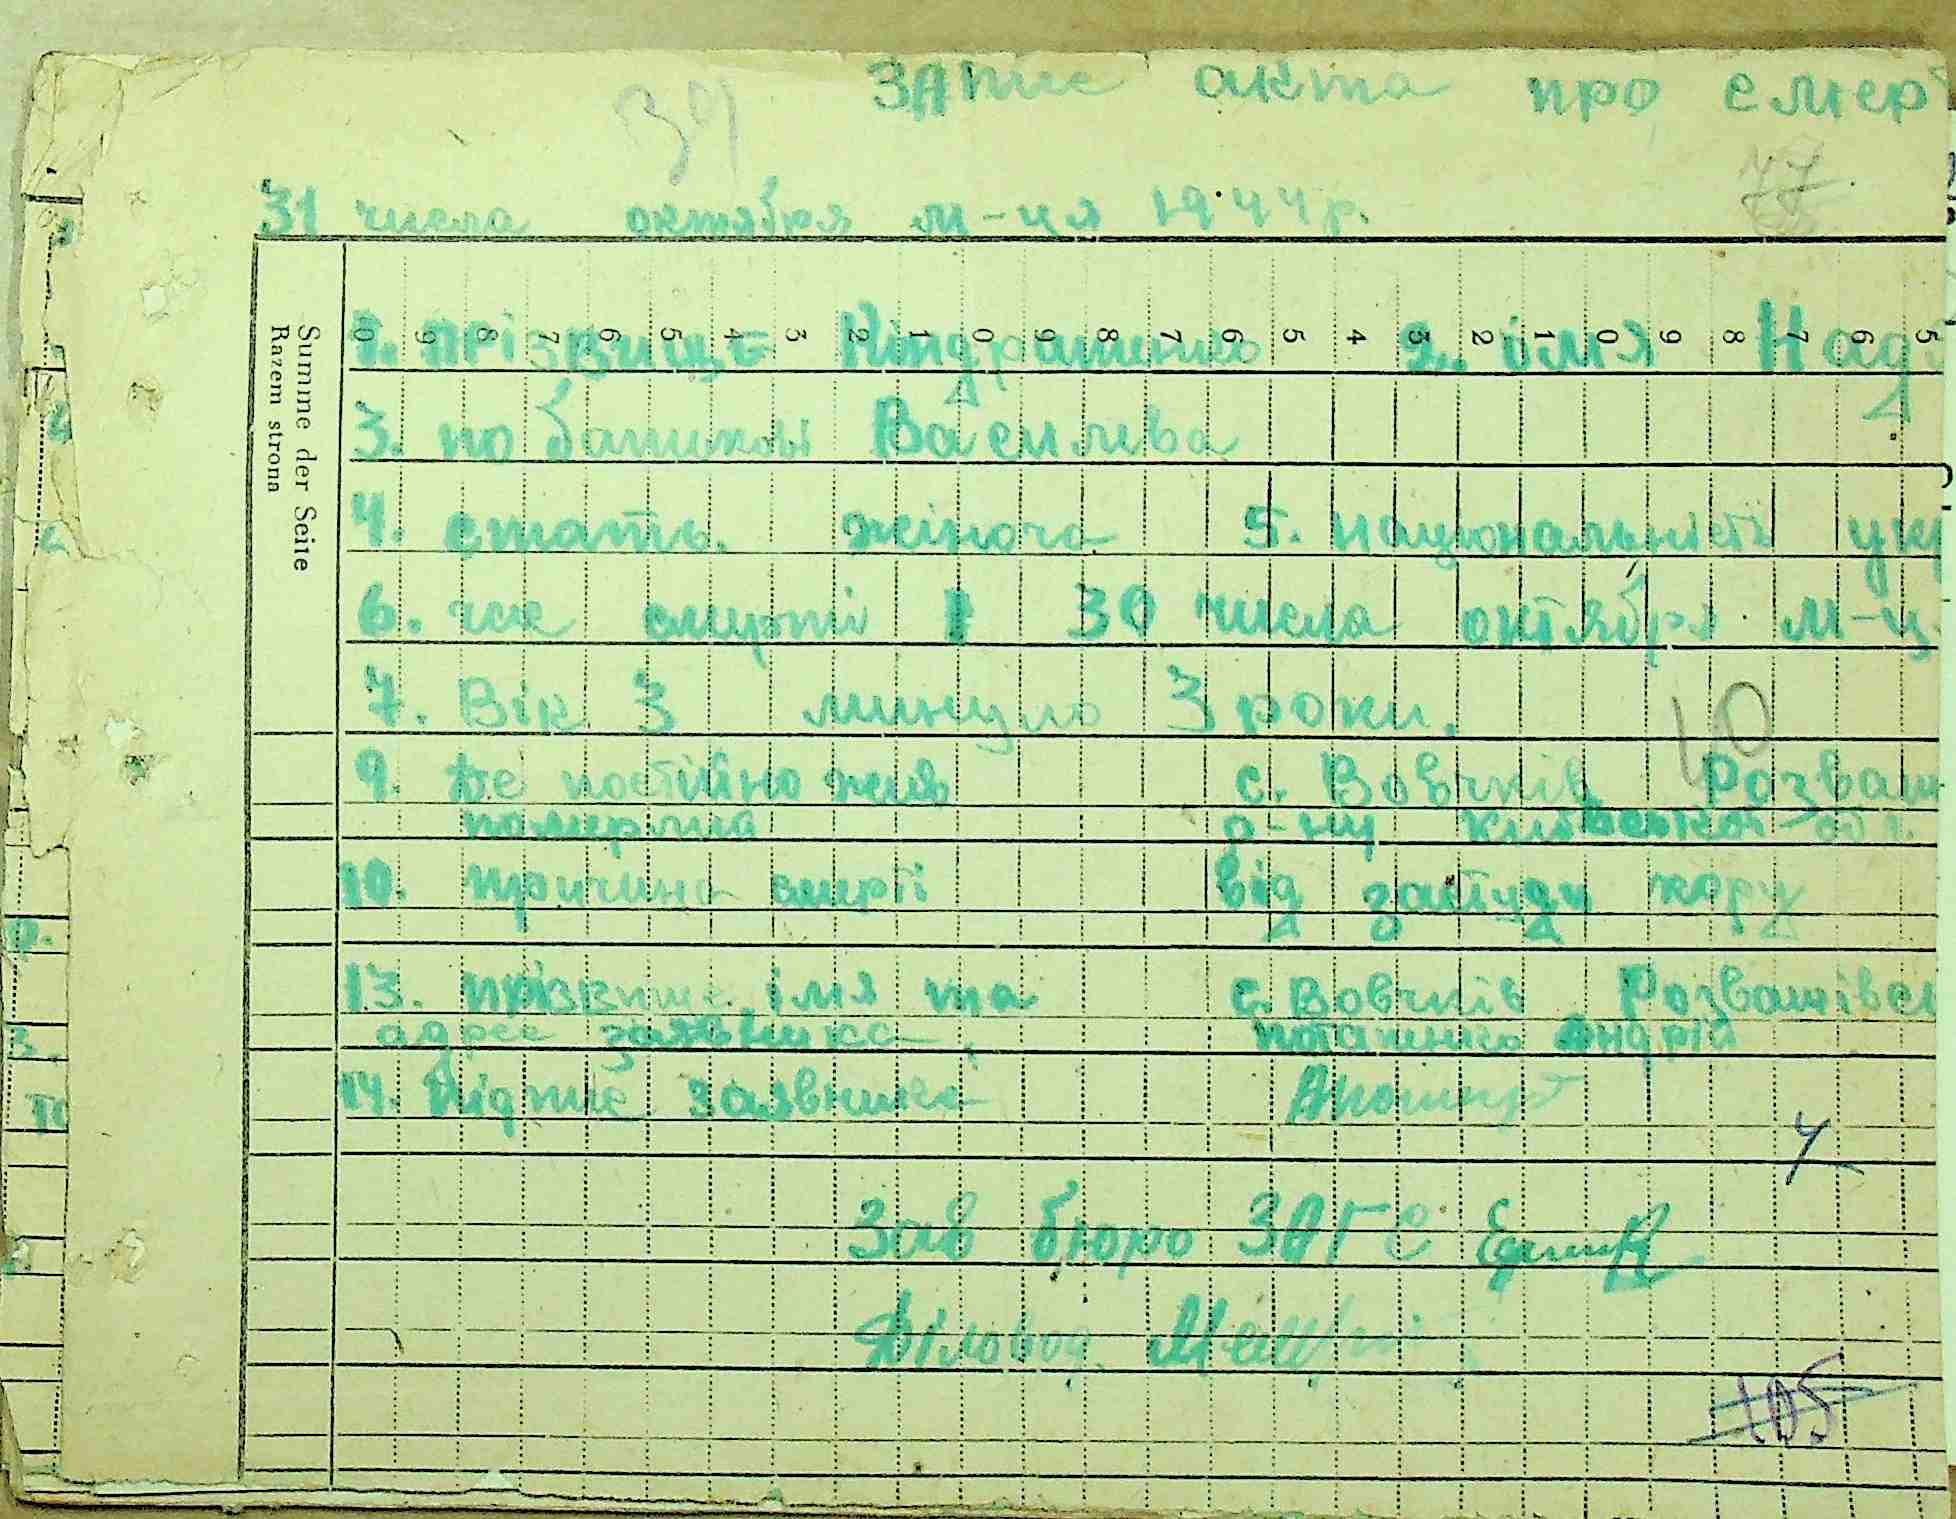 39
Запис акта про смер
77
31 числа октября м-ця 1944 р.
Summe der Seite
Razem strona
0 9 8 7 6 5 4 3 2 1 0 9 8 7 6 5 4 3 2 1 0 9 8 7 6 5
1. прізвище Кіндратенко 2. імя Над
3. по батькові Василева
4. стать. жіноча 5. національність укр
6. час смерті 30 числа октября м-ц
7. Вік 3 минуло 3 роки.
10
9. де постійно жив с. Вовчків Розваж
померлий р-ну київської обл.
10. причина смерті від застуди кору
13. прізвище імя та с. Вовчків Розважівсь
адрес заявника, Потапенко Андрій
14. Підпис заявника
Зав бюро ЗАГС
Діловод.
105